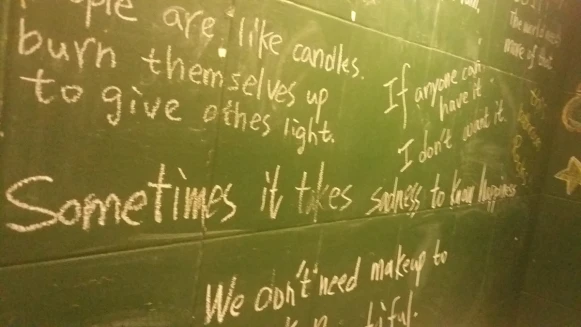 are like candles.
burn themselves up
to give othes light.
If anyone can
have it.
I don't want it.
The world needs
more of that
Sometimes it takes sadness to know Happiness
We don't need makeup to